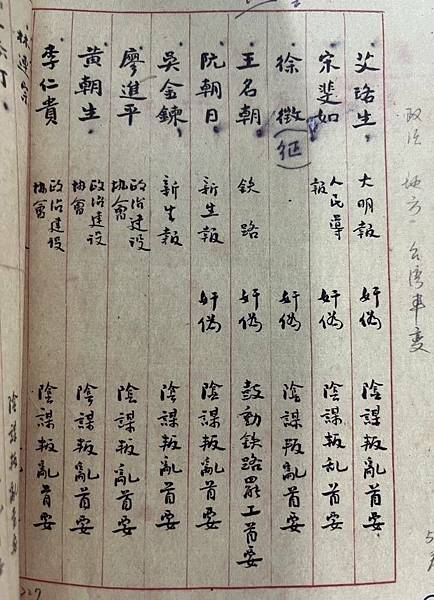 艾珞生 大明報 奸偽 陰謀叛亂首要
宋斐如 人民導報 奸偽 陰謀叛乱首要
徐徵(征) 奸偽 陰謀叛亂首要
王名朝 鉄路 奸偽 鼓動鉄路罷工首要
阮朝日 新生報 奸偽 陰謀叛亂首要
吳金鍊 新生報 陰謀叛亂首要
廖進平 政治建設協會 陰謀叛亂首要
黃朝生 政治建设協會 陰謀叛亂首要
李仁貴 政治建设協會 陰謀叛亂首要